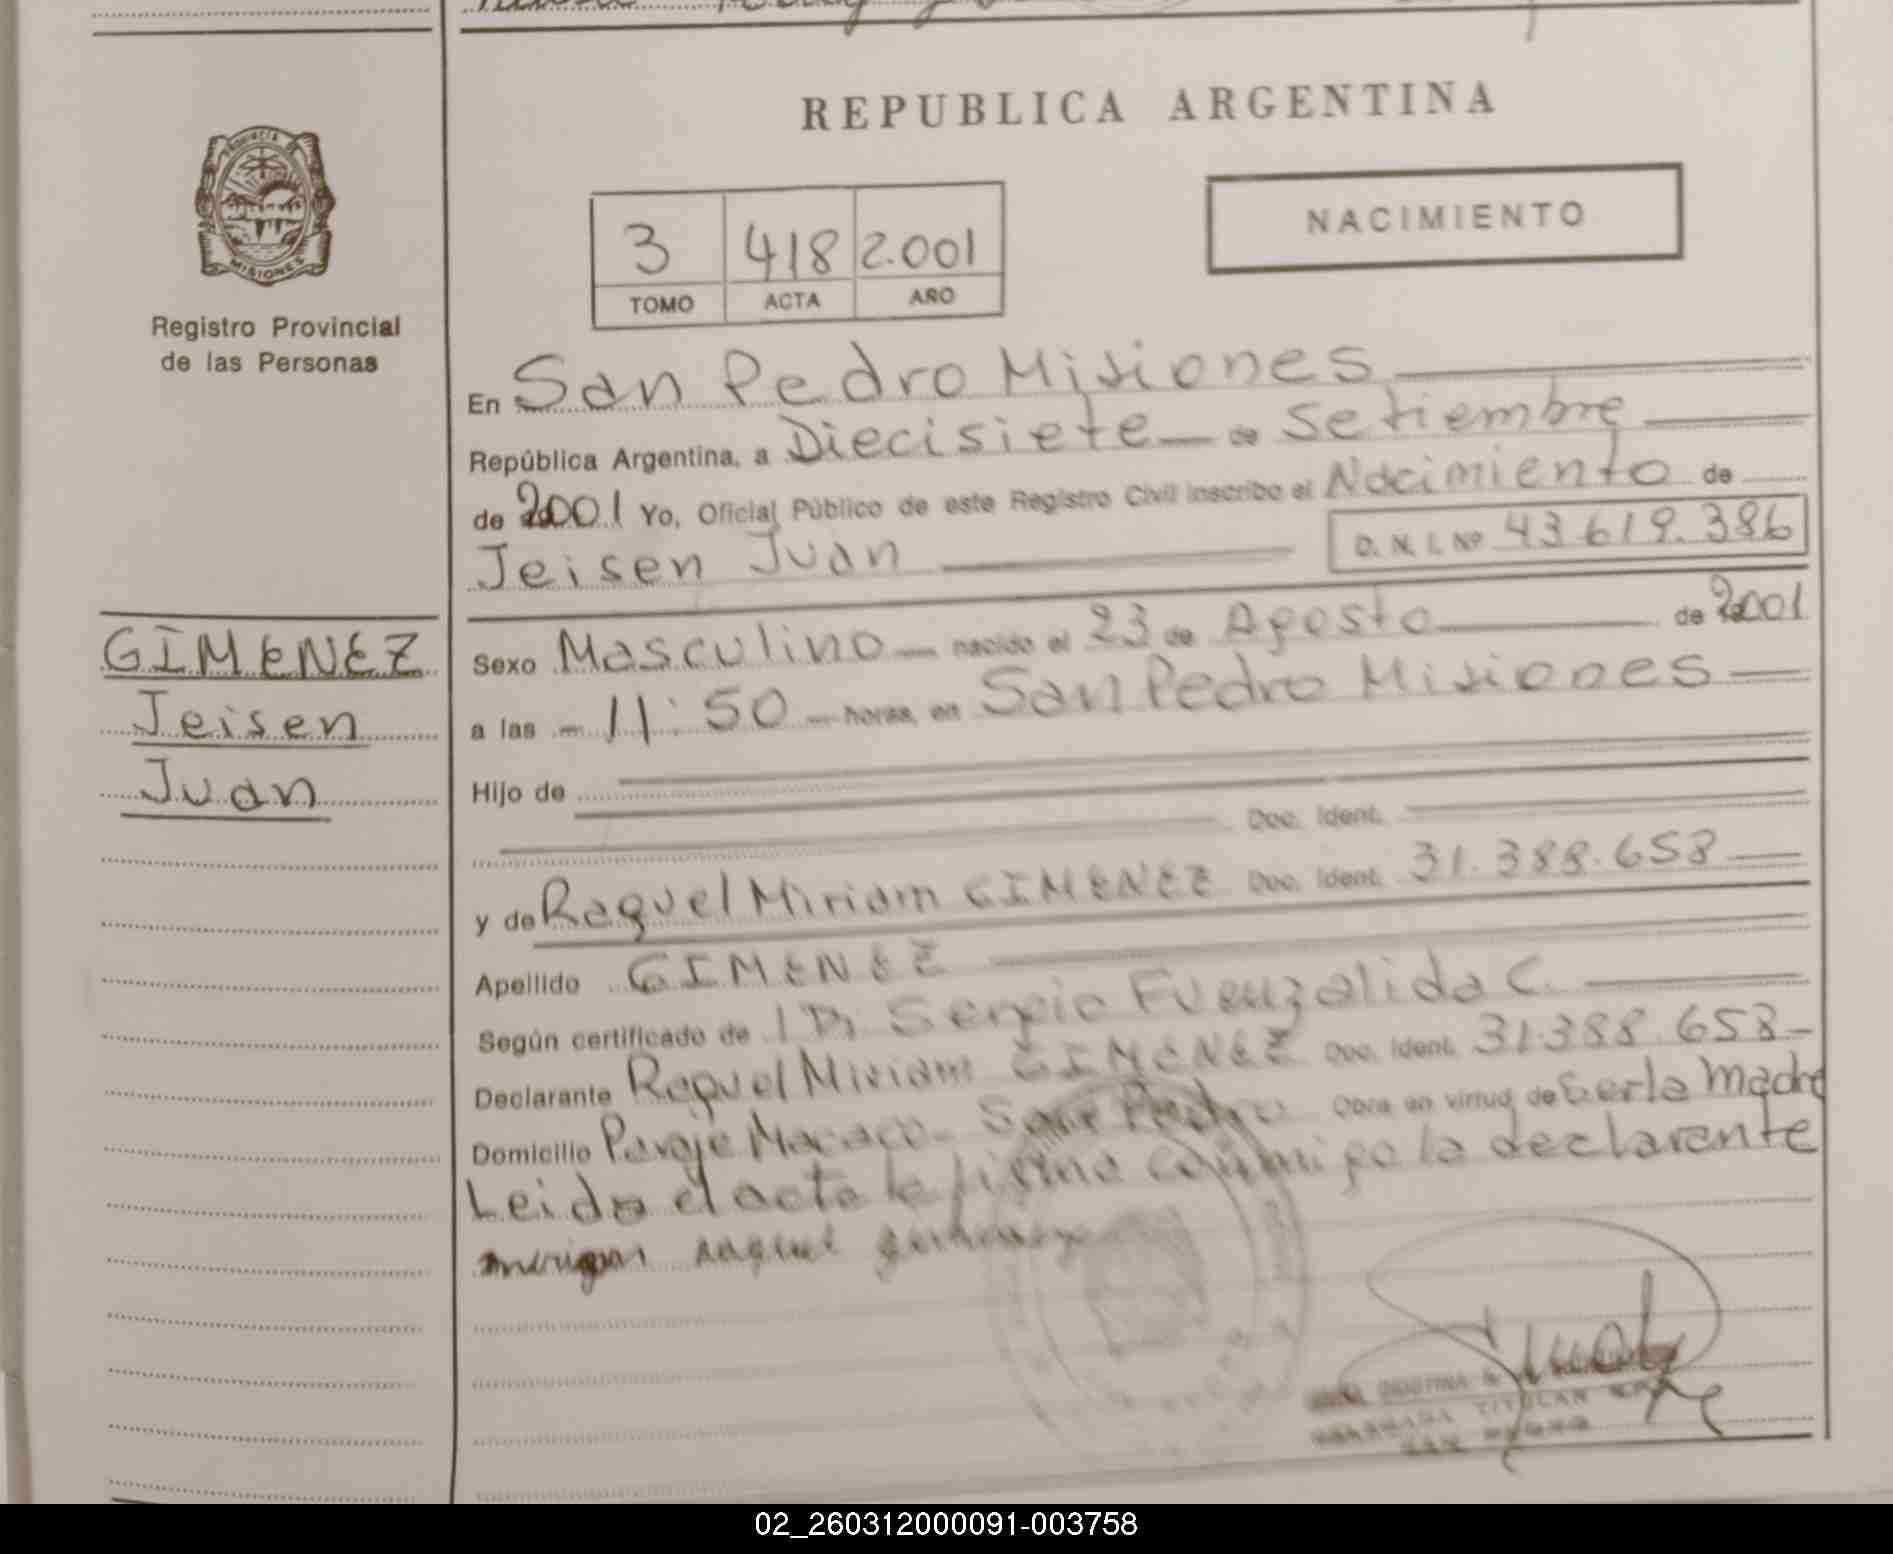 REPUBLICA ARGENTINA
PROVINCIA DE
MISIONES
Registro Provincial
de las Personas
3 418 2.001
TOMO ACTA AÑO
NACIMIENTO
En San Pedro Misiones
República Argentina, a Diecisiete de Setiembre
de 2001 Yo, Oficial Público de este Registro Civil inscribo el Nacimiento de
Jeisen Juan D. N. I. Nº 43.619.386
GIMENEZ
Jeisen
Juan
Sexo Masculino nacido el 23 de Agosto de 2001
a las 11:50 horas, en San Pedro Misiones
Hijo de
Doc. Ident.
y de Raquel Miriam GIMENEZ Doc. Ident. 31.388.658
Apellido GIMENEZ
Según certificado de Sergio Fuenzalida C.
Declarante Raquel Miriam GIMENEZ Doc. Ident. 31.388.658
Domicilio Paraje Macaco - San Pedro Obra en virtud de Serla Madre
Leida el acta la firma conmigo la declarante
TITULAR
SAN PEDRO
02_260312000091-003758